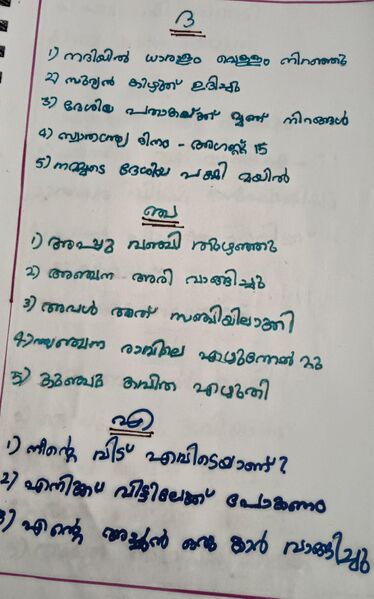 ദ
1) നദിയിൽ ധാരാളം വെള്ളം നിറഞ്ഞു
2) സൂര്യൻ കിഴക്ക് ഉദിച്ചു
3) ദേശീയ പതാകയ്ക്ക് മൂന്ന് നിറങ്ങൾ
4) സ്വാതന്ത്ര്യ ദിനം - ആഗസ്റ്റ് 15
5) നമ്മുടെ ദേശീയ പക്ഷി മയിൽ
ഞ്ച
1) അപ്പു വഞ്ചി തുഴഞ്ഞു
2) അഞ്ചന അരി വാങ്ങിച്ചു
3) അവൾ അത് സഞ്ചിയിലാക്കി
4) അഞ്ചന രാവിലെ എഴുന്നേറ്റു
5) കുഞ്ചു കവിത എഴുതി
എ
1) നിന്റെ വീട് എവിടെയാണ്?
2) എനിക്ക് വീട്ടിലേക്ക് പോകണം
3) എന്റെ അച്ഛൻ ഒരു കാർ വാങ്ങിച്ചു